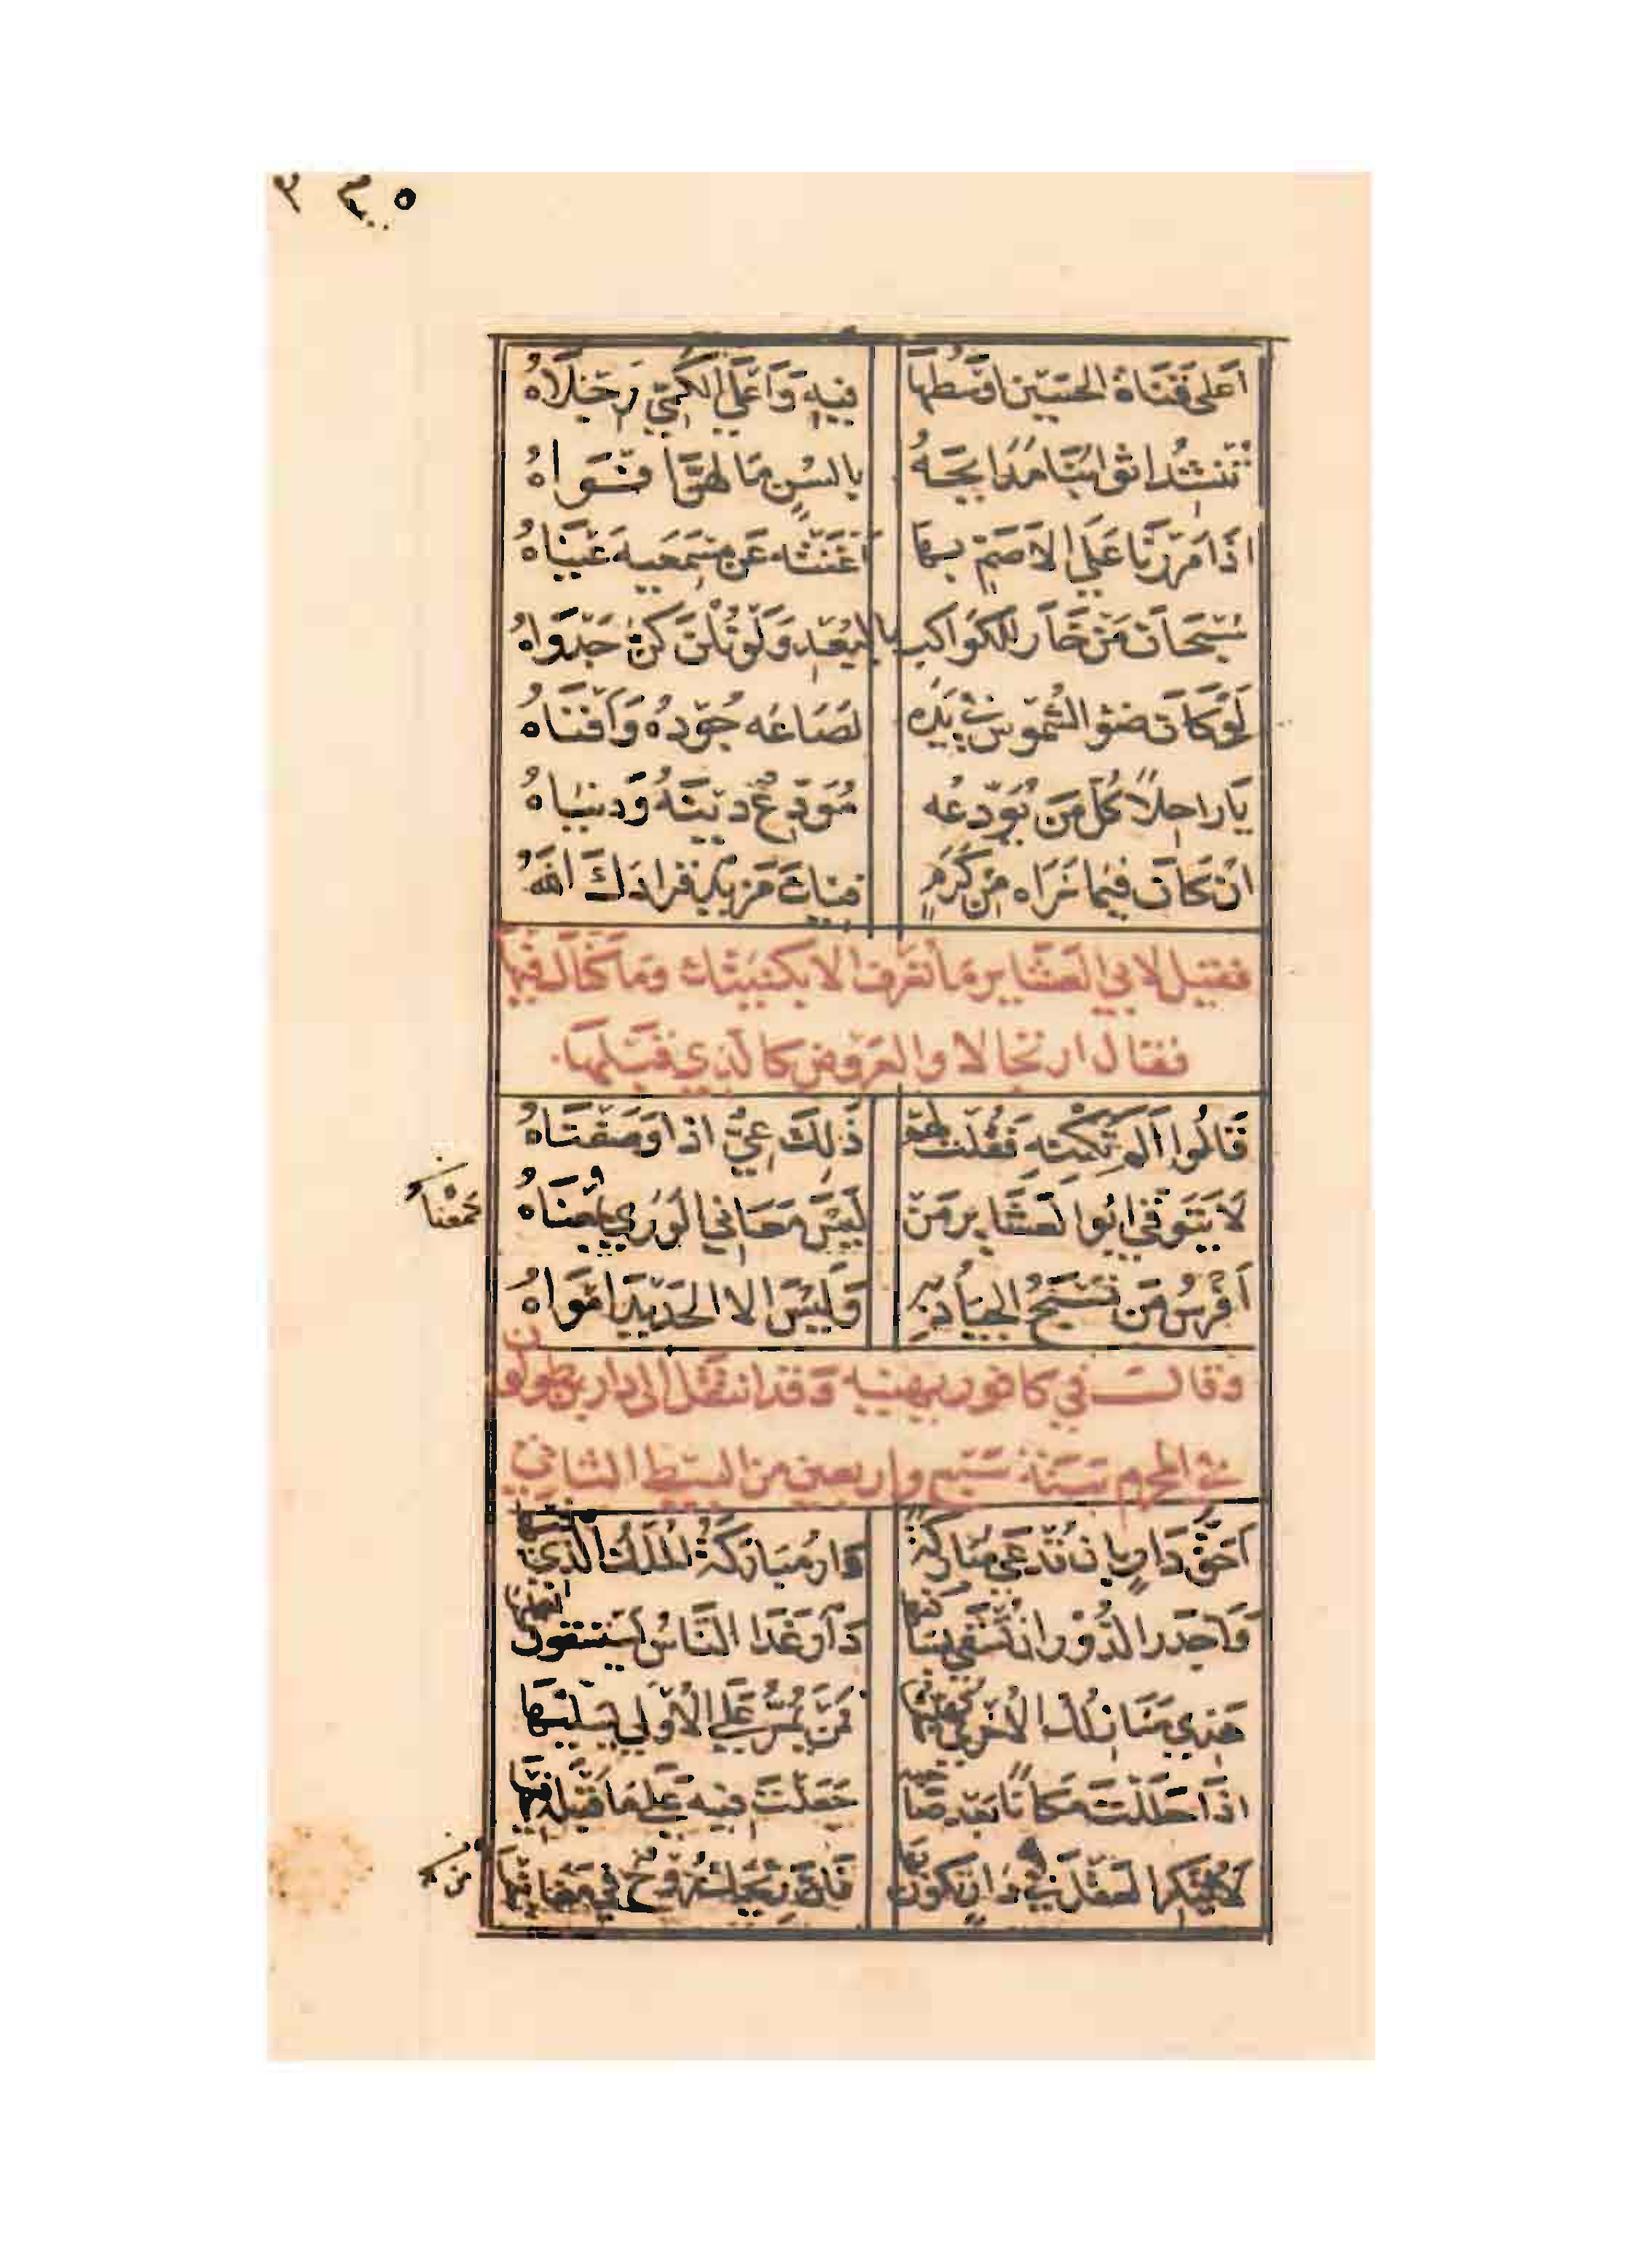 ٣٣٥
أعلى قناة الحسين اوسطها فيه وأعلى الكمي رجلاه
تنشد اثوابنا مدايحه بالسن ما لهن افواه
اذا مررنا على الاصم بها اغنته عن مسمعيه عيناه
سبحان من خار للكواكب بالبعد ولو نلن كن جدواه
لو كان ضو الشموس في يده لصاعه جوده وأفناه
يا راحلا كل من يودعه مودع دينه ودنياه
ان كان فيما نراه من كرم فيك مزيد فزادك الله
فقيل لابي العشاير ما تعرف الا بكنيتك وما كناك فيها
فقال ارتجالا والعروض كالذي قبلها.
قالوا ألم تكنه فقلت لهم ذلك عي اذا وصفناه
لا يتوقى ابوا لعشاير من ليس معاني الورى بمعناه
بمعناه
أفرس من تسبح الجياد به وليس الا الحديد امواه
وقال في كافور يهنيه وقد انتقل الى دار بن طولون
في المحرم سنة سبع واربعين من البسيط الثاني
احق دار بان تدعى مباركة دار مباركة الملك الذي فيها
واجدر الدور ان تسقى بساكنها دار غدا الناس يستسقون اهليها
هذي منازلك الاخرى نهنيها فمن يمر على الاولى يسليها
اذا حللت مكانا بعد صاحبه جعلت فيه على ما قبله تيها
لا ينكر العقل في دار تكون بها فان ريحك روح في مغانيها
من